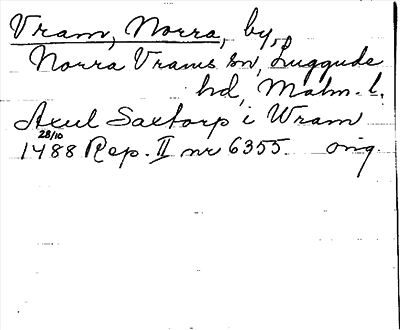 Vram, Norra, by,
Norra Vrams sn, Luggude
hd, Malm. l.
Axel Saxtorp i Wram
28/10
1488 Rep. II nr 6355. orig.